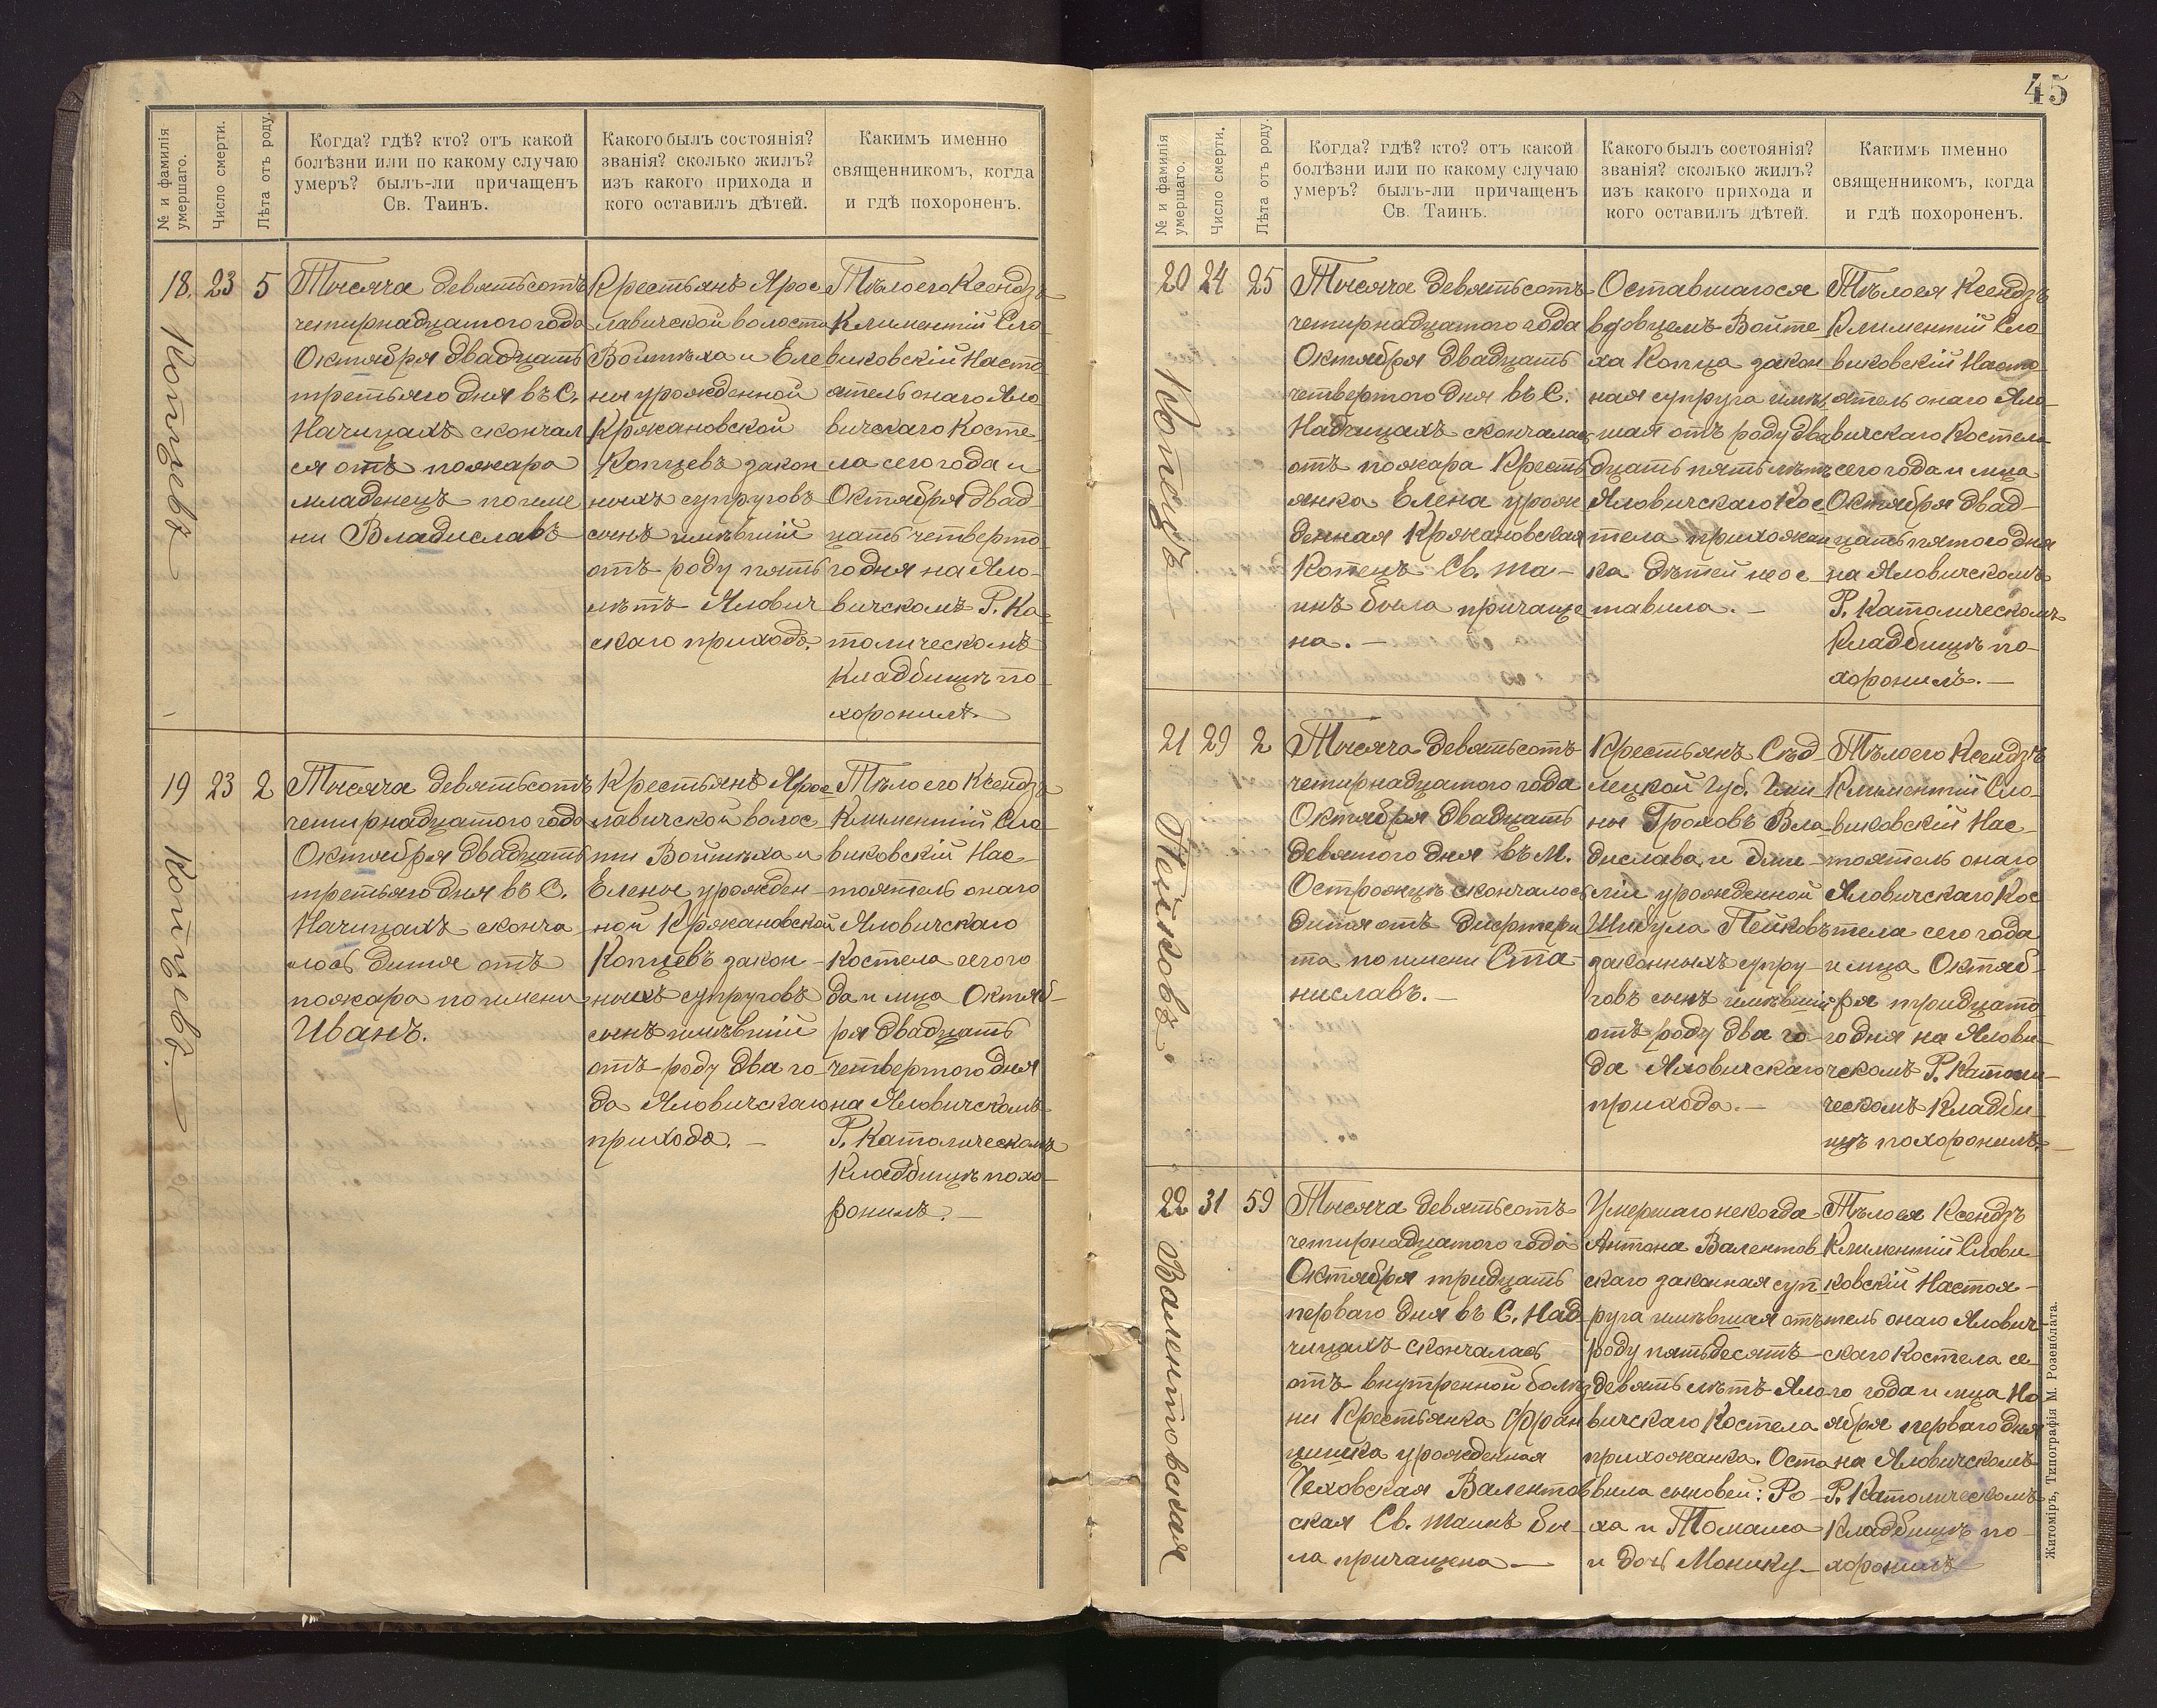 № и фамилія умершаго.
Число смерти.
Лѣта отъ роду.
Когда? гдѣ? кто? отъ какой
болѣзни или по какому случаю
умеръ? былъ-ли причащенъ
Св. Таинъ.
Какого былъ состоянія?
званія? сколько жилъ?
изъ какого прихода и
кого оставилъ дѣтей.
Какимъ именно
священникомъ, когда
и гдѣ похороненъ.
18.
Копцевъ
23
5
Тысяча девятьсотъ
четырнадцатого года
Октября двадцать
третьяго дня въ С.
Начицахъ скончал
ся отъ пожара
младенецъ по име
ни Владиславъ
Крестьянъ Ярос
лавичской волости
Войтѣха и Еле
ны урожденной
Кржановской
Копцевъ закон
ныхъ супруговъ
сынъ имѣвшій
отъ роду пять
лѣтъ Ялович
скаго прихода.
Тѣло его Ксендзъ
Климентій Сло
виковскій Насто
ятель онаго Яло
вичскаго Косте
ла сего года и
Октября двад
цать четверто
го дня на Яло-
вичскомъ Р. Ка
толическомъ
Кладбищѣ по
хоронилъ.
19
Копцевъ.
23
2
Тысяча девятьсотъ
четырнадцатого года
Октября двадцать
третьяго дня въ С.
Начицахъ сконча
лось дитя отъ
пожара по имени
Иванъ.
Крестьянъ Ярос
лавичской волос
ти Войтѣха и
Елены урожден
ной Кржановской
Копцевъ закон
ныхъ супруговъ
сынъ имѣвшій
отъ роду два го
да Яловичскаго
прихода.
Тѣло его Ксендзъ
Климентій Сло
виковскій Нас-
тоятель онаго
Яловичскаго
Костела сего го
да и мца Октяб-
ря двадцать
четвертого дня
на Яловичскомъ
Р. Католическомъ
Кладбищѣ похо
ронилъ.
45
№ и фамилія умершаго.
Число смерти.
Лѣта отъ роду.
Когда? гдѣ? кто? отъ какой
болѣзни или по какому случаю
умеръ? былъ-ли причащенъ
Св. Таинъ.
Какого былъ состоянія?
званія? сколько жилъ?
изъ какого прихода и
кого оставилъ дѣтей.
Какимъ именно
священникомъ, когда
и гдѣ похороненъ.
20
Копецъ
24
25
Тысяча девятьсотъ
четырнадцатого года
Октября двадцать
четвертого дня въ С.
Надчицахъ скончалась
отъ пожара Кресть
янка Елена урож
денная Кржановская
Копецъ Св. та-
инъ была причаще
на. —
Оставшагося
вдовцемъ Войте
ха Копца закон
ная супруга имѣв
шая отъ роду два
дцать пять лѣтъ
Яловичскаго Кос
тела прихожан
ка дѣтей не ос
тавила. —
Тѣло ея Ксендзъ
Климентій Сло
виковскій Насто
ятель онаго Яло-
вичскаго Костела
сего года и мца
Октября двад-
цать пятого дня
на Яловичскомъ
Р. Католическомъ
Кладбищѣ по-
хоронилъ. —
21
Пейковъ.
29
2
Тысяча девятьсотъ
четырнадцатого года
Октября двадцать
девятого дня въ М.
Острожцѣ скончалось
дитя отъ дифтери
та по имени Ста-
ниславъ. —
Крестьянъ Сѣд-
лецкой Губ. Гми
ны Гроховъ Вла
дислава и Эми-
ліи урожденной
Шикула Пейковъ
законныхъ супру-
говъ сынъ имѣвшій
отъ роду два го-
да Яловичскаго
прихода. —
Тѣло его Ксендзъ
Климентій Сло-
виковскій Нас-
тоятель онаго
Яловичскаго Кос
тела сего года
и мца Октяб-
ря тридцато
го дня на Ялови-
чскомъ Р. Католи-
ческомъ Кладби-
щѣ похоронилъ.
22
Валентовская
31
59
Тысяча девятьсотъ
четырнадцатого года
Октября тридцать
перваго дня въ С. Над
чицахъ скончалась
отъ внутренной болѣз
ни Крестьянка Фран
цишка урожденная
Чеховская Валентов
ская Св. таинъ бы-
ла причащена —
Умершаго некогда
Антона Валентов
скаго законная суп
руга имѣвшая отъ
роду пятьдесятъ
девять лѣтъ Яло
вичскаго Костела
прихожанка. Оста
вила сыновей: Ро-
ха и Томаша
и дочь Монику —
Тѣло ея Ксендзъ
Климентій Слови
ковскій Настоя-
тель онаго Ялович
скаго Костела се
го года и мца Но
ября перваго дня
на Яловичскомъ
Р. Католическомъ
Кладбищѣ по-
хоронилъ
Житоміръ, Типографія М. Розенблата.